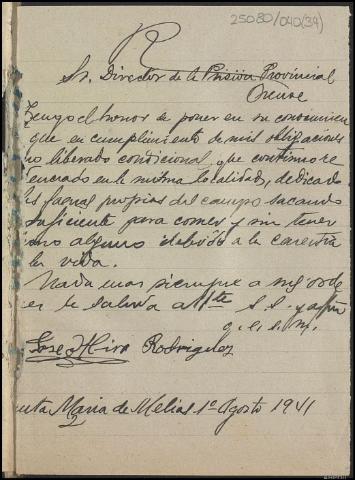 25080/040(34)
R
Sr. Director de la Prisión Provincial
Orense
Tengo el honor de poner en su conocimien
que en cumplimiento de mis obligaciones
mo liberado condicional, que continuo re
enciado en la misma localidad, dedicado
faenas propias del campo sacando
suficiente para comer y sin tener
alguno debido a la carestia
la vida.
Nada mas siempre a sus orde
es le saluda atte s. s. y
q. e. s. m.
Jose Rodriguez
Maria de Melias 1º Agosto 1941